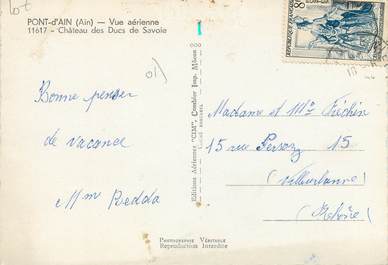 PONT-d'AIN (Ain) — Vue aérienne
11617 - Château des Ducs de Savoie
Bonne pensée
de vacance
Mme Redda
Editions Aériennes "CIM", Combier Imp. Mâcon
Madame et Mr Fréchin
15 rue Persoz 15
Villeurbanne
Rhône
Photographie Véritable
Reproduction Interdite